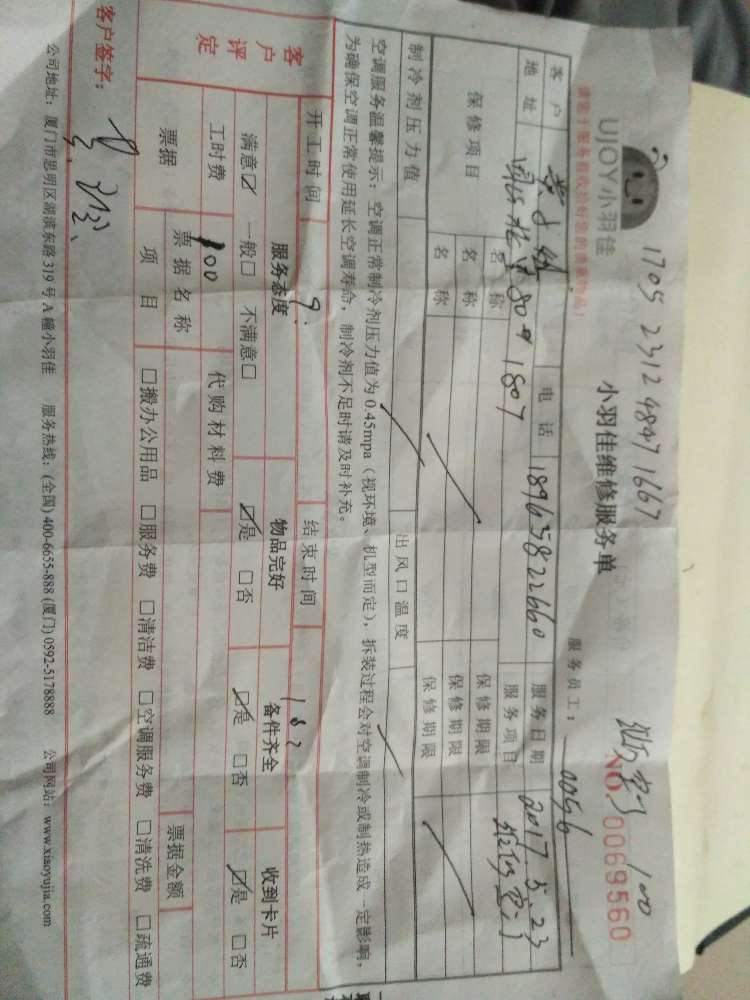 1705 2312 4847 1667
100
UJOY小羽佳
小羽佳维修服务单
NO. 0069560
请您于服务前收拾好您的贵重物品!
服务员工: 0056
客户
电话 18965822660
服务日期 2017.5.23
地址 809 1807
服务项目
保修项目
名称
保修期限
名称
保修期限
名称
保修期限
制冷剂压力值
出风口温度
空调服务温馨提示:空调正常制冷剂压力值为0.45mpa(视环境、机型而定),拆装过程会对空调制冷或制热造成一定影响,
为确保空调正常使用延长空调寿命,制冷剂不足时请及时补充。
开工时间 9:
结束时间
客户评定
服务态度
物品完好
备件齐全
收到卡片
满意☑ 一般□ 不满意□
☑是 □否
☑是 □否
☑是 □否
工时费 100
代购材料费
票据
票据名称
票据金额
项目
□搬办公用品 □服务费 □清洁费 □空调服务费 □清洗费 □疏通费
客户签字:
公司地址:厦门市思明区湖滨东路319号A幢小羽佳 服务热线:(全国) 400-6655-888 (厦门) 0592-5178888 公司网站:www.xiaoyujia.com